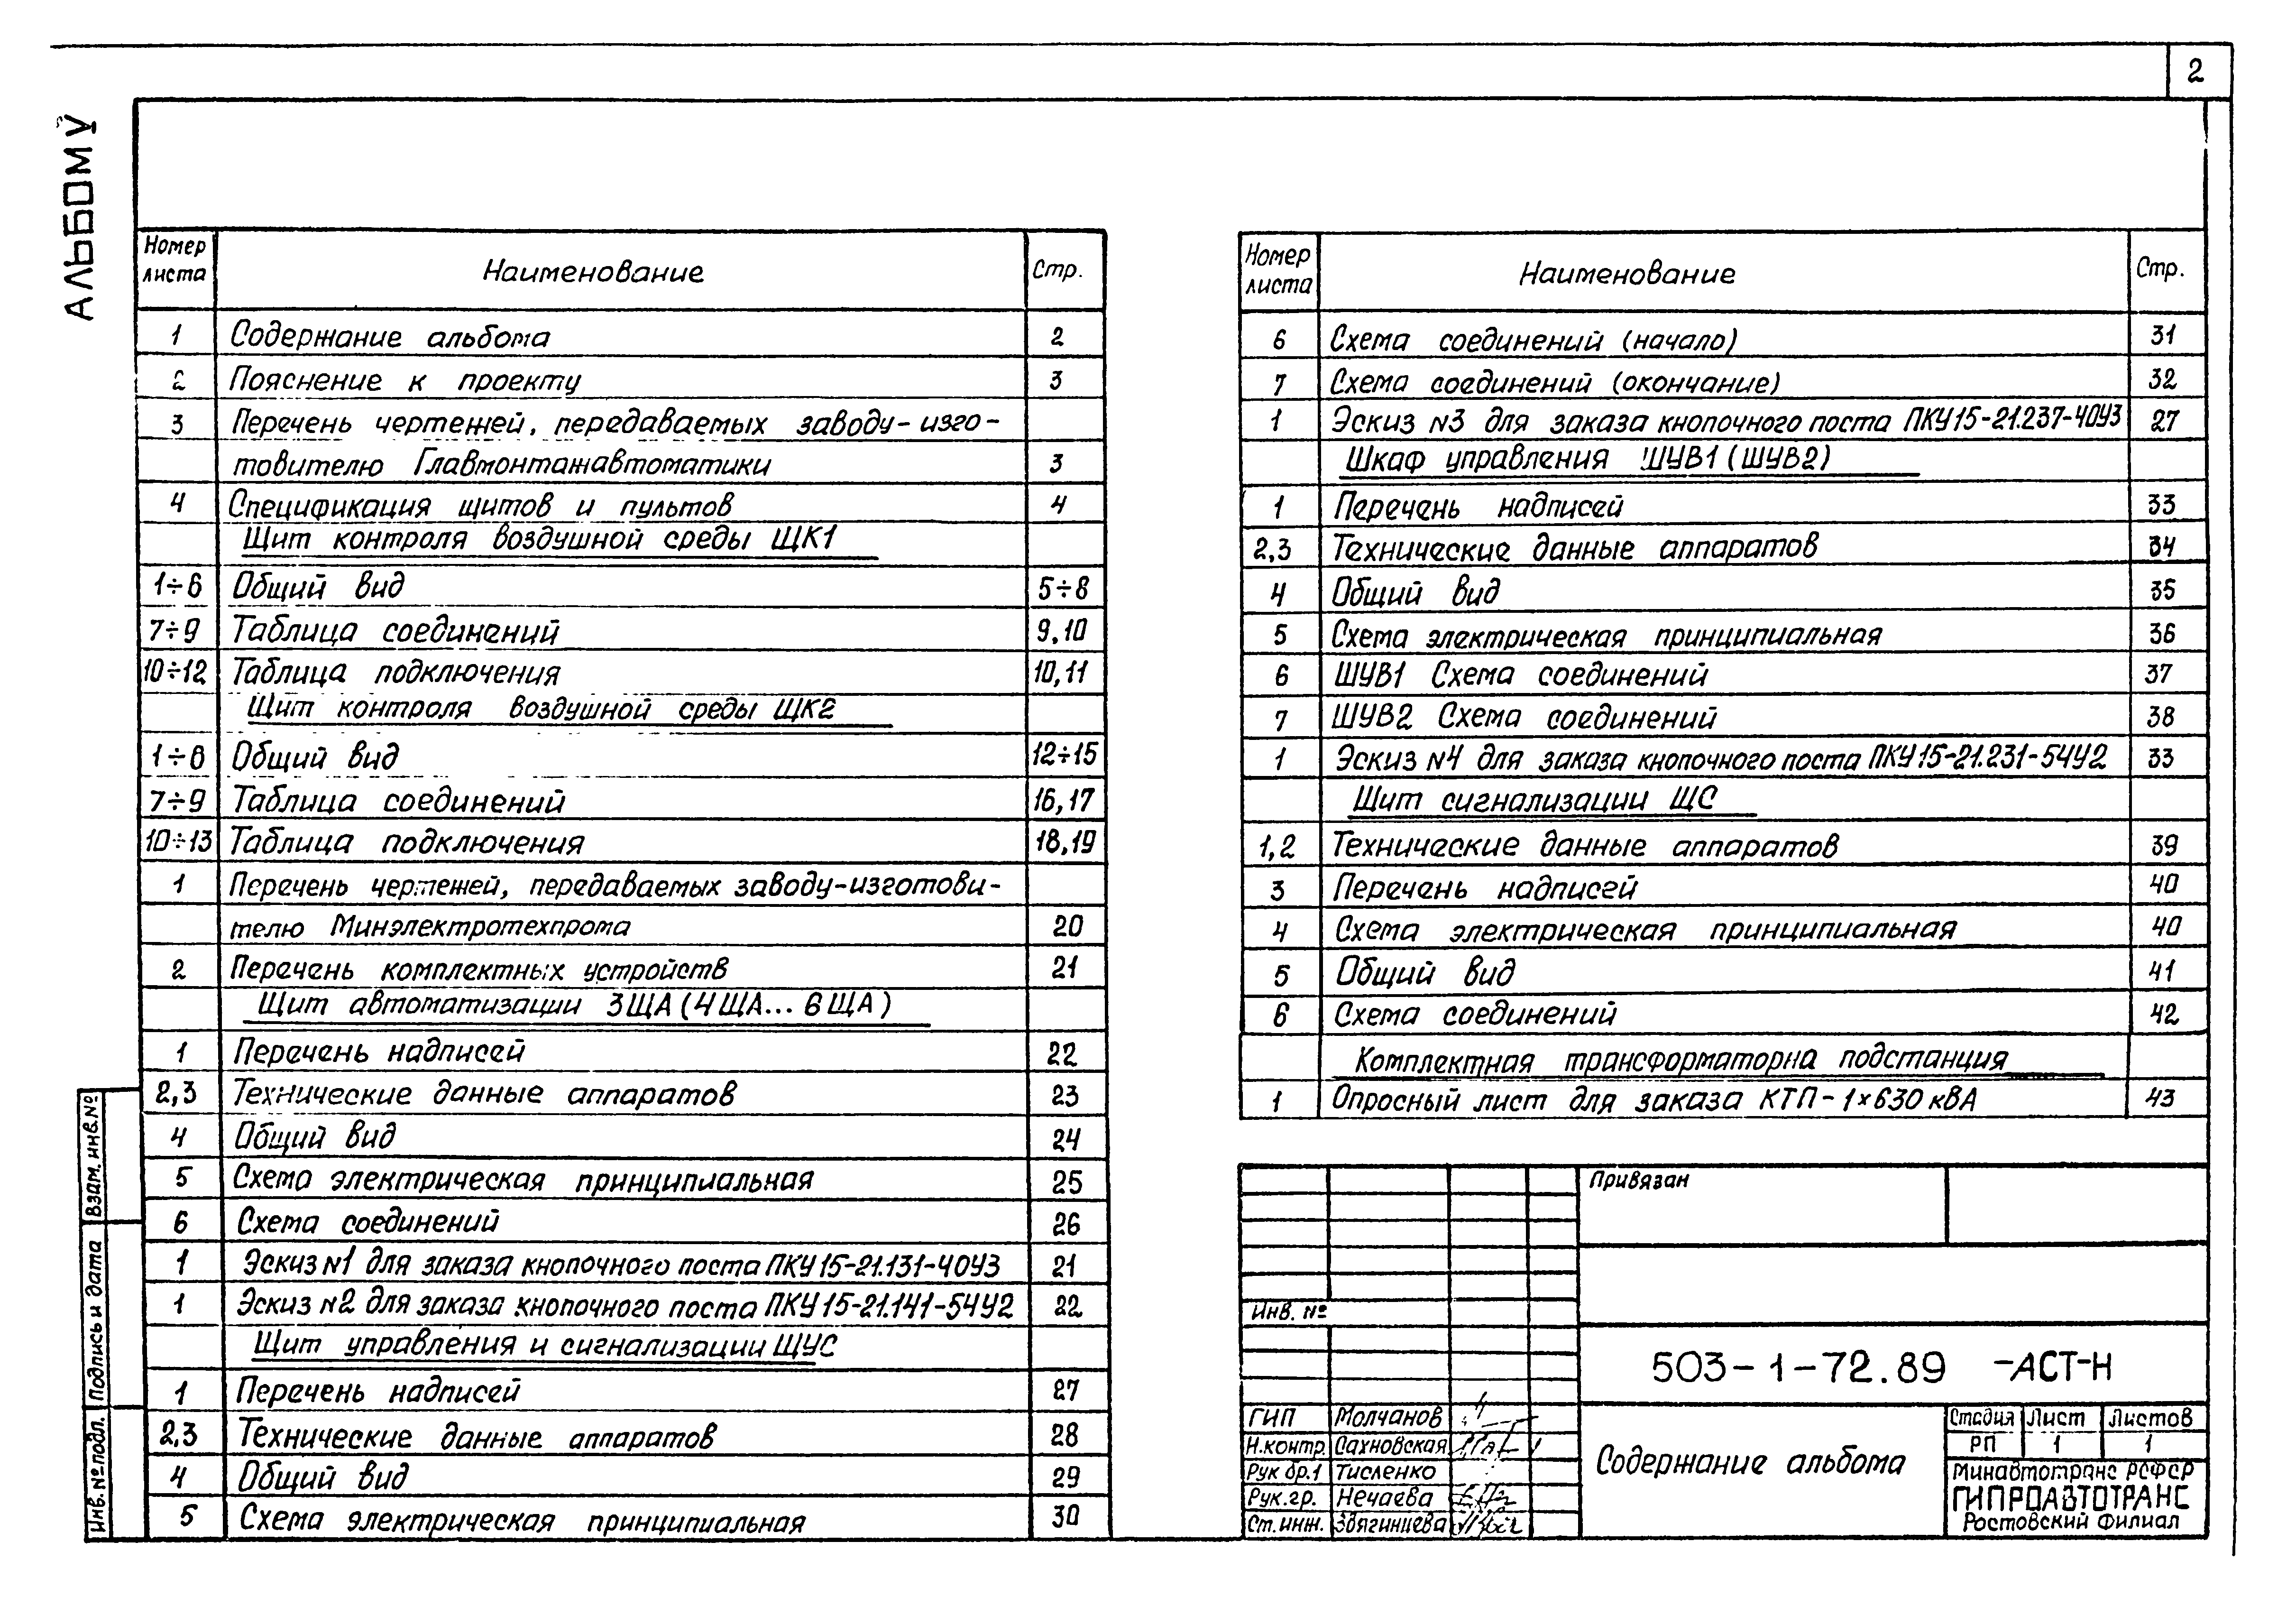 2
АЛЬБОМ V
Номер листа Наименование Стр.
1 Содержание альбома 2
2 Пояснение к проекту 3
3 Перечень чертежей, передаваемых заводу-изго-
товителю Главмонтажавтоматики 3
4 Спецификация щитов и пультов 4
Щит контроля воздушной среды ЩК1
1÷6 Общий вид 5÷8
7÷9 Таблица соединений 9,10
10÷12 Таблица подключения 10,11
Щит контроля воздушной среды ЩК2
1÷6 Общий вид 12÷15
7÷9 Таблица соединений 16,17
10÷13 Таблица подключения 18,19
1 Перечень чертежей, передаваемых заводу-изготови-
телю Минэлектротехпрома 20
2 Перечень комплектных устройств 21
Щит автоматизации 3ЩА (4ЩА... 6ЩА)
1 Перечень надписей 22
2,3 Технические данные аппаратов 23
4 Общий вид 24
5 Схема электрическая принципиальная 25
6 Схема соединений 26
1 Эскиз №1 для заказа кнопочного поста ПКУ15-21.131-40У3 21
1 Эскиз №2 для заказа кнопочного поста ПКУ15-21.141-54У2 22
Щит управления и сигнализации ЩУС
1 Перечень надписей 27
2,3 Технические данные аппаратов 28
4 Общий вид 29
5 Схема электрическая принципиальная 30
Номер листа Наименование Стр.
6 Схема соединений (начало) 31
7 Схема соединений (окончание) 32
1 Эскиз №3 для заказа кнопочного поста ПКУ15-21.237-40У3 27
Шкаф управления ШУВ1 (ШУВ2)
1 Перечень надписей 33
2,3 Технические данные аппаратов 34
4 Общий вид 35
5 Схема электрическая принципиальная 36
6 ШУВ1 Схема соединений 37
7 ШУВ2 Схема соединений 38
1 Эскиз №4 для заказа кнопочного поста ПКУ15-21.231-54У2 33
Щит сигнализации ЩС
1,2 Технические данные аппаратов 39
3 Перечень надписей 40
4 Схема электрическая принципиальная 40
5 Общий вид 41
6 Схема соединений 42
Комплектная трансформаторна подстанция
1 Опросный лист для заказа КТП-1×630 кВА 43
Привязан
Инв. №
503-1-72.89 -АСТ-Н
ГИП Молчанов
Н.контр. Сахновская
Рук бр.1 Тисленко
Рук.гр. Нечаева
Ст.инж. Звягинцева
Содержание альбома
Стадия Лист Листов
РП 1 1
Минавтотранс РСФСР
ГИПРОАВТОТРАНС
Ростовский Филиал
Взам. инв.№
Подпись и дата
Инв.№подл.